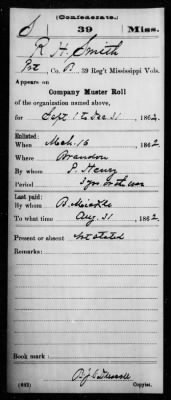 (Confederate.)
S 39 Miss.
R H Smith
Pvt, Co. B, 39 Reg't Mississippi Vols.
Appears on
Company Muster Roll
of the organization named above,
for Sept 1 to Dec 31, 1862.
Enlisted:
When Mch 15, 1862
Where Brandon
By whom J. Henry
Period 3 yrs or the war
Last paid:
By whom
To what time Aug 31, 1862
Present or absent Not stated
Remarks:
Book mark:
(642) Copyist.